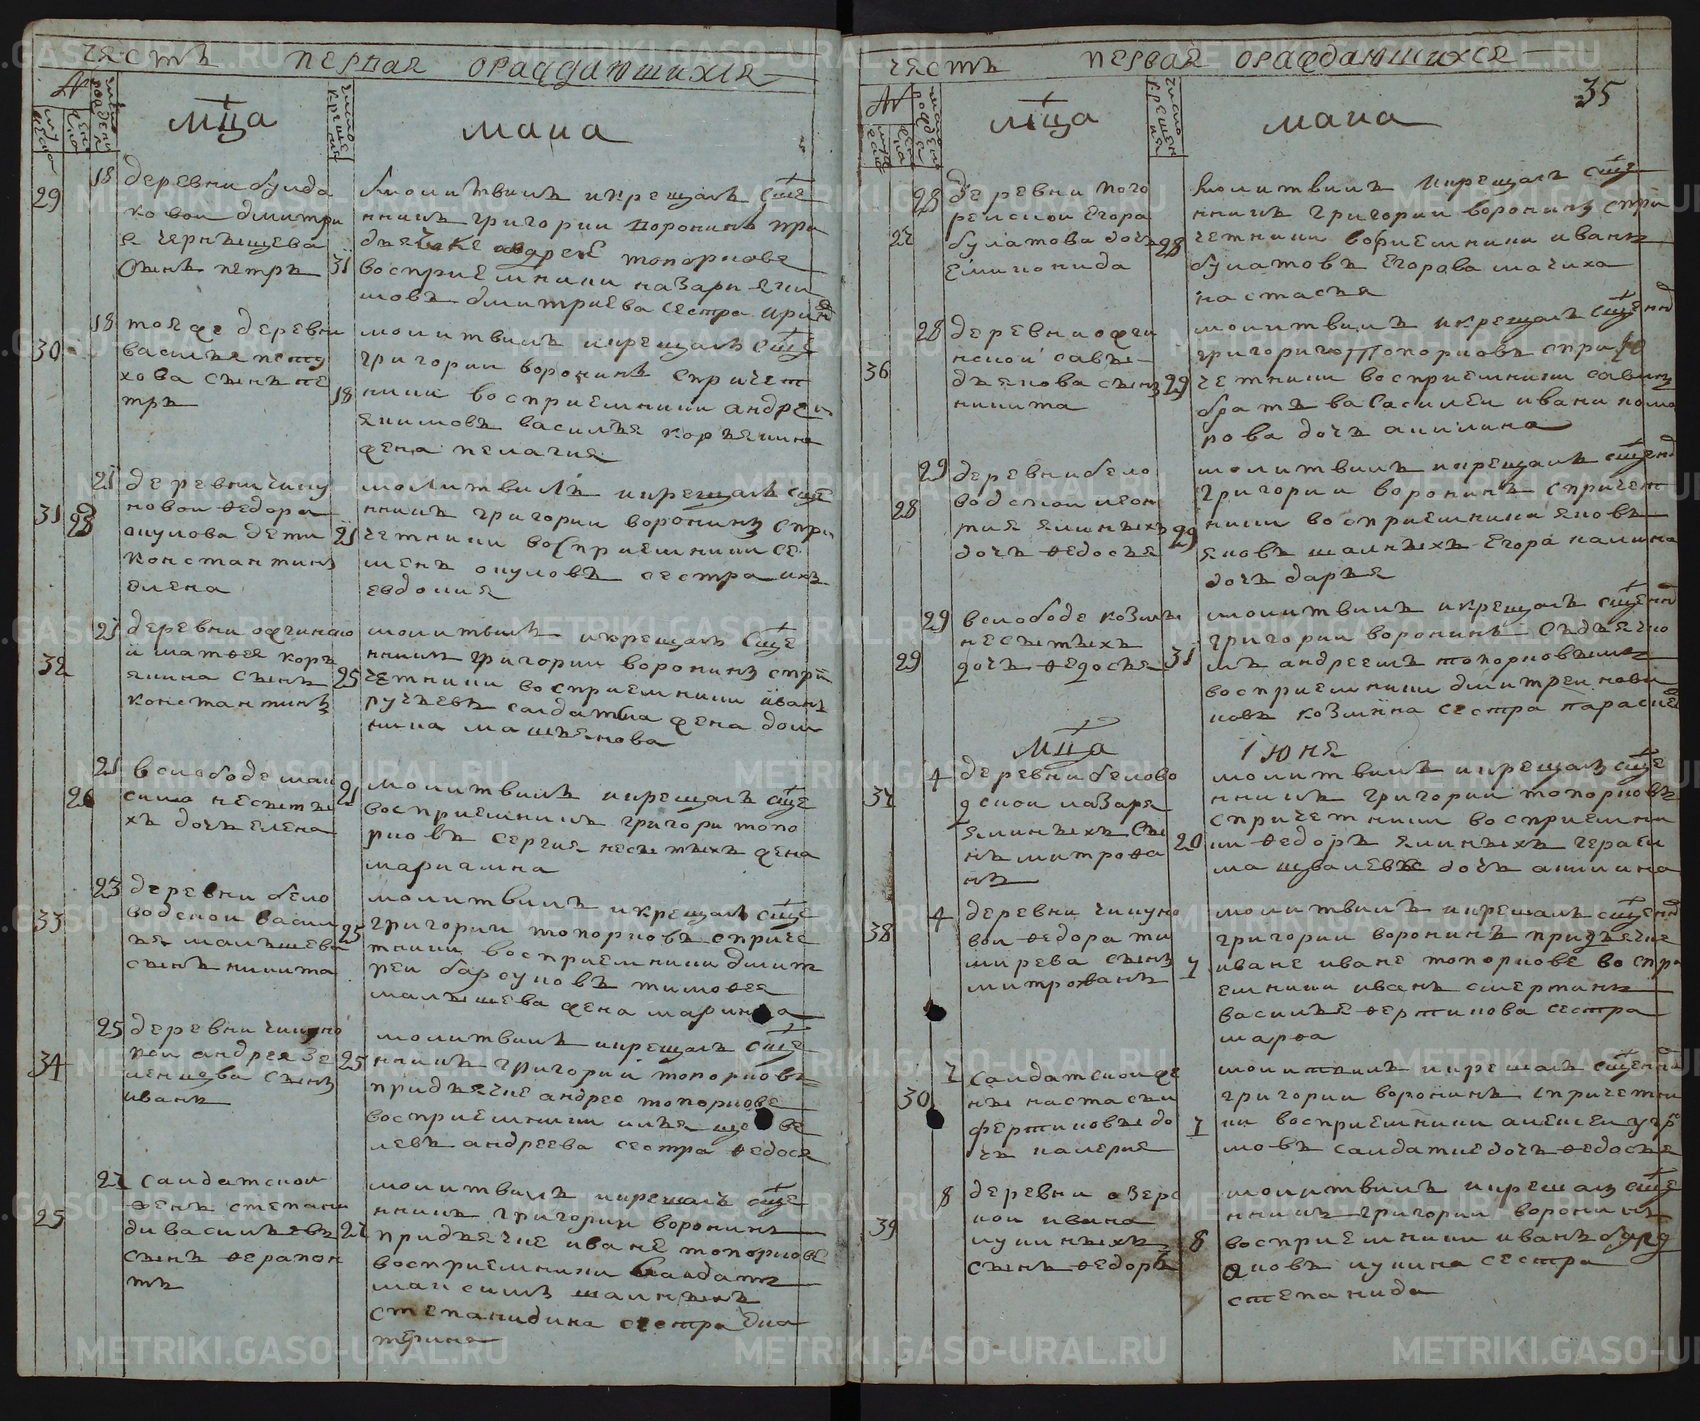 часть первая ораждающихся
№
мца
маиа
29
18
деревни булда
ковои дмитри
я чернышева
сынъ петръ
31
молитвилъ икрещалъ сще
нникъ григории воронинъ при
дьячке андрее топорковe
восприемники назаръ яки
мовъ дмитриева сестра ирина
30
18
тояже деревни
василья пету
хова сынъ пе
тръ
18
молитвилъ икрещалъ сще
григории воронинъ спричет
ники восприемники андреи
якимовъ василья корякина
жена пелагия
31
28
21
деревни чику
новои федора
окулова дети
константинъ
елена
21
молитвилъ икрещалъ сще
нникъ григории воронинъ спри
четники восприемники се
менъ окуловъ сестра ихъ
евдокия
32
21
матфея коря
кина сынъ
константинъ
25
молитвилъ икрещалъ сще
нникъ григории воронинъ спри
четники восприемники иванъ
ручьевъ салдатка жена дом
ника
26
21
вслободе мак
сима несыты
хъ дочь елена
21
молитвилъ икрещалъ сще
восприемникъ григори топо
рковъ сергия несытыхъ жена
мариамна
33
23
деревни бело
водскои васил
ья малышева
сынъ никита
25
молитвилъ икрещалъ сще
григории топорковъ сприче
тники восприемники дмит
реи барсуковъ тимофея
малышева жена марина
34
25
деревни чикуно
вои андрея зе
ленцова сынъ
иванъ
25
молитвилъ икрещалъ сще
нникъ григории топорковъ
придьячке андрее топоркове
восприемники илья
левъ андреева сестра федося
25
27
салдатскои
женъ степани
ди васильевъ
сынъ ферапон
тъ
27
молитвилъ икрещалъ сще
нникъ григории воронинъ
придьячке иване топоркове
восприемники салдатъ
максимъ шалныхъ
степанидина сестра
часть первая ораждающихся
35
№
мца
маиа
27
28
деревни пого
релскои егора
булатова дочь
28
молитвилъ икрещалъ сще
нникъ григории воронинъ спри
четники восприемники иванъ
булатовъ егорова мачиха
настасья
36
28
сынъ
никита
29
молитвилъ икрещалъ сщенн
григории топорковъ спри
четники восприемники савинъ
братъ василеи ивана кома
рова дочь акилина
28
29
деревни бело
водскои леон
тия якиныхъ
дочь федосья
29
молитвилъ икрещалъ сщенн
григории воронинъ спричет
ники восприемники яковъ
яковъ шалныхъ егора калина
дочь дарья
29
29
вслободе козмы
несытыхъ
дочь федосья
31
молитвилъ икрещалъ сщенн
григории воронинъ съдьячко
мъ андреемъ топорковымъ
восприемники дмитреи нови
ковъ козмина сестра параскев
мца
июня
37
4
деревни беловo
дскои лазаря
якиныхъ сы
нъ митрофа
нъ
20
молитвилъ икрещалъ сще
нникъ григории топорковъ
спричетники восприемни
ки федоръ якиныхъ гераси
ма шваlевъ дочь акилина
38
4
деревни чикуно
вои федора ти
мирева сынъ
митрофанъ
7
молитвилъ икрещалъ сщенн
григории воронинъ придьячке
иване иване топоркове воспри
емники иванъ смертинъ
василья фертикова сестра
марфа
30
7
салдатскои же
ны настасьи
фертиковы до
чь калерия
7
молитвилъ икрещалъ сщенн
григории воронинъ спричетни
ки восприемники алексеи угрю
мовъ салдатке дочь федосья
39
8
деревни озерс
кои ивана
кукиныхъ
сынъ федоръ
8
молитвилъ икрещалъ сще
нникъ григории воронинъ
восприемники иванъ бурд
аковъ кукина сестра
степанида